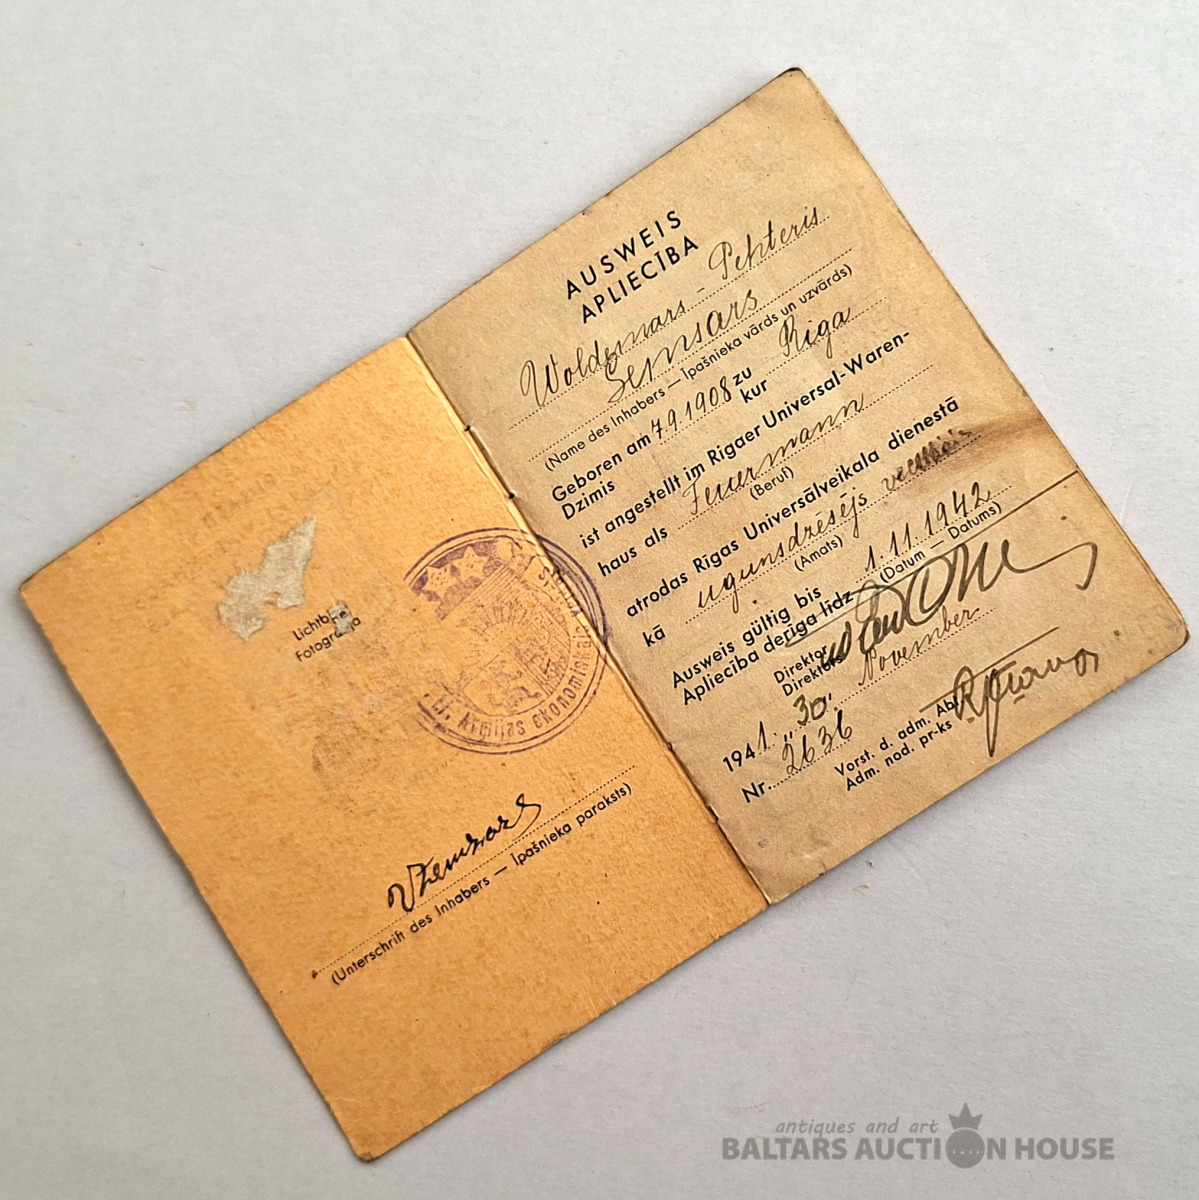 Lichtbi
Fotogra a
(Unterschrift des Inhabers — Īpašnieka paraksts)
Ekonomiskais
AUSWEIS
APLIECĪBA
Woldemars - Pehteris
Semsars
(Name des Inhabers — Īpašnieka vārds un uzvārds)
Geboren am 7.9.1908 zu Riga
Dzimis kur
ist angestellt im Rigaer Universal-Waren-
haus als Feuermann
(Beruf)
atrodas Rīgas Universālveikala dienestā
kā ugunsdzēsējs
(Amats)
Ausweis gültig bis 1.11.1942
Apliecība derīga līdz
(Datum — Datums)
Direktor
Direktors
1941. „30" November
Nr. 2636
Vorst. d. adm. Abt.
Adm. nod. pr-ks
antiques and art
BALTARS AUCTION HOUSE